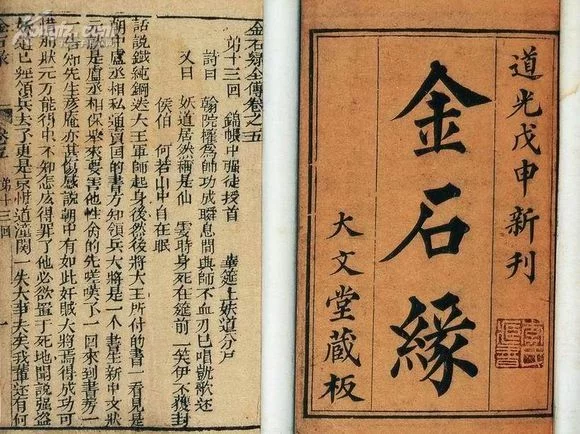 道光戊申新刊
金石緣
大文堂藏板
金石緣全傳卷之五
第十三回 錦帳中强徒授首 華筵上妖道分尸
詩曰 翰院權為帥功成瞬息間興師不血刃已唱凱歌还
又曰 妖道居然稱是仙 霎時身死在筵前 一笑伊不獲封
侯伯 何若山中自在眠
話說鐵純鋼送大王軍師起身後然後將大王所付的書一看見是
朝中盧丞相私通賣国的書方知領兵大將是一个書生新中文狀
元就是盧丞相保舉來要害他性命的先嗟嘆了一回來到書房一
一告知先生彥庵亦甚傷感說朝中有如此奸賊大將焉得成功可
惜那狀元万能得中不知怎庅得罪了他必欲置于死地聞說强盗
妖道已經領兵去了更是京惶道潼関一失大事去矣我輩还有何
金石緣 卷五 第十三回 一